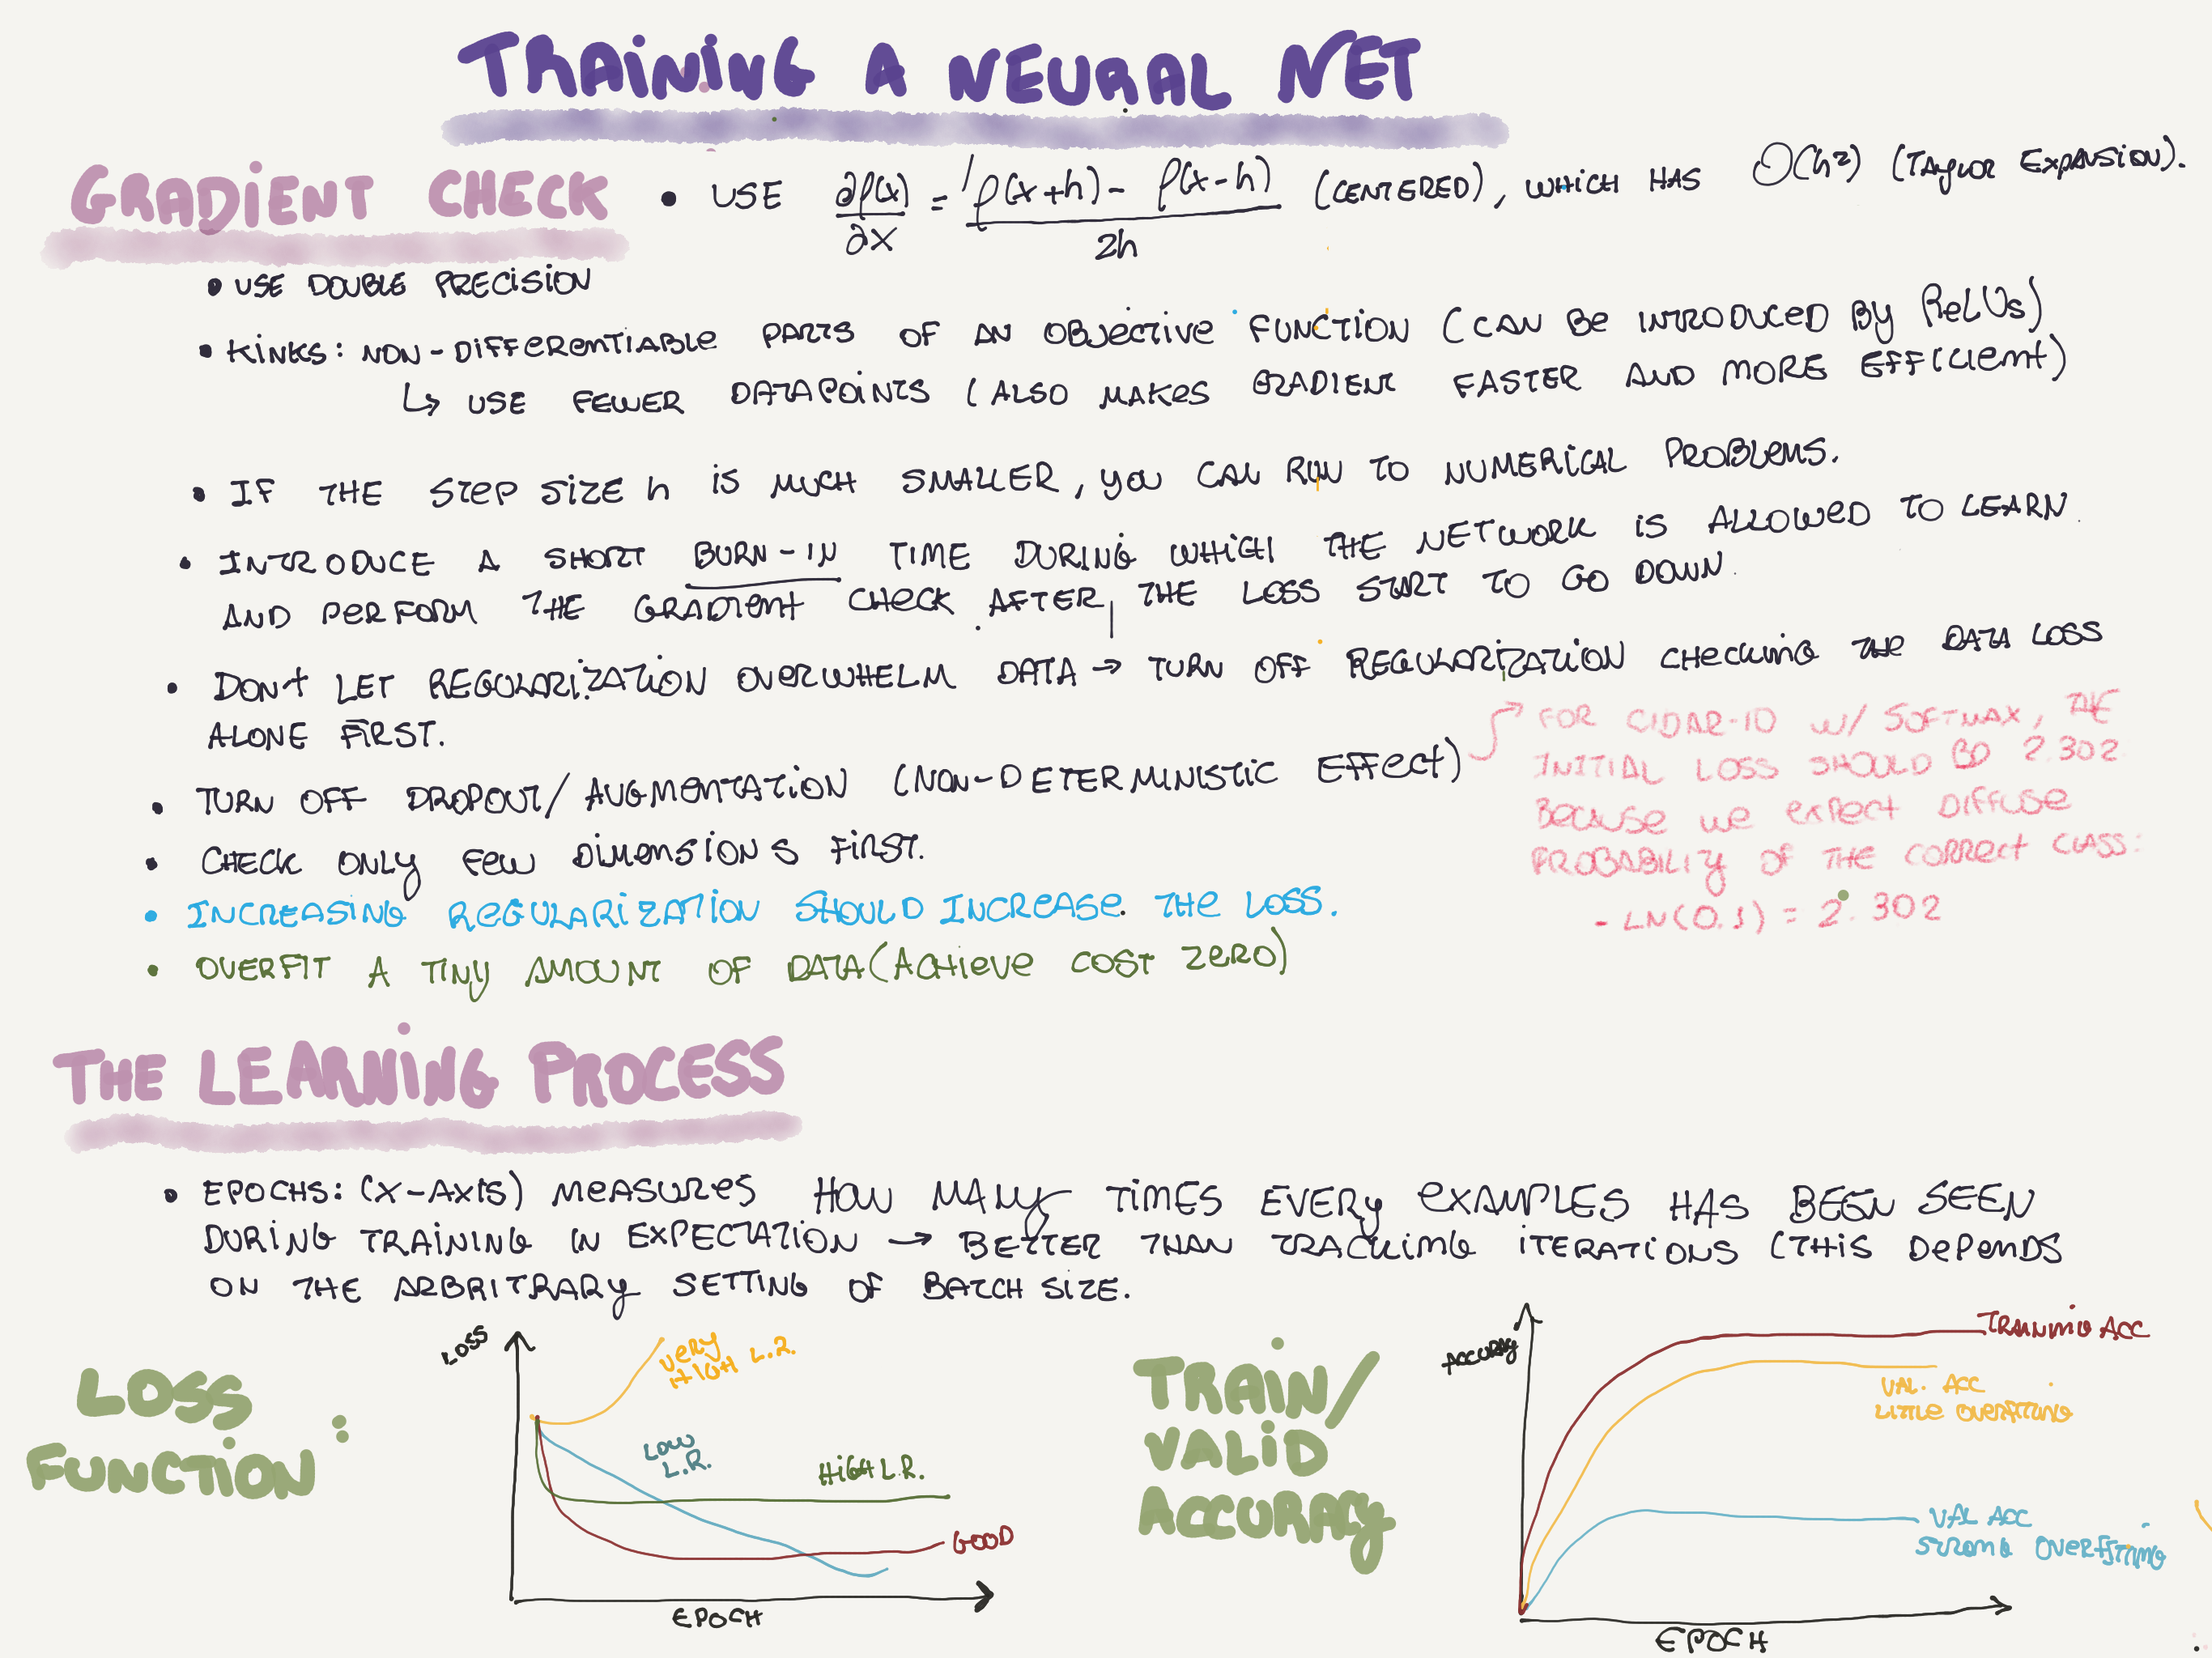 TRAINING A NEURAL NET
GRADIENT CHECK
• USE ∂f(x)/∂x = f(x+h) - f(x-h) / 2h (CENTERED), WHICH HAS O(h²) (TAYLOR EXPANSION).
• USE DOUBLE PRECISION
• KINKS: NON-DIFFERENTIABLE PARTS OF AN OBJECTIVE FUNCTION (CAN BE INTRODUCED BY ReLUs)
↳ USE FEWER DATAPOINTS (ALSO MAKES GRADIENT FASTER AND MORE EFFICIENT)
• IF THE STEP SIZE h IS MUCH SMALLER, YOU CAN RUN TO NUMERICAL PROBLEMS.
• INTRODUCE A SHORT BURN-IN TIME DURING WHICH THE NETWORK IS ALLOWED TO LEARN
AND PERFORM THE GRADIENT CHECK AFTER THE LOSS START TO GO DOWN.
• DON'T LET REGULARIZATION OVERWHELM DATA → TURN OFF REGULARIZATION CHECKING THE DATA LOSS
ALONE FIRST.
• TURN OFF DROPOUT/AUGMENTATION (NON-DETERMINISTIC EFFECT)
• CHECK ONLY FEW DIMENSIONS FIRST.
• INCREASING REGULARIZATION SHOULD INCREASE THE LOSS.
• OVERFIT A TINY AMOUNT OF DATA (ACHIEVE COST ZERO)
FOR CIDAR-10 W/ SOFTMAX, THE
INITIAL LOSS SHOULD BD 2.302
BECAUSE WE EXPECT DIFFUSE
PROBABILITY OF THE CORRECT CLASS:
- LN(0.1) = 2.302
THE LEARNING PROCESS
• EPOCHS: (X-AXIS) MEASURES HOW MANY TIMES EVERY EXAMPLES HAS BEEN SEEN
DURING TRAINING IN EXPECTATION → BETTER THAN TRACKING ITERATIONS (THIS DEPENDS
ON THE ARBRITRARY SETTING OF BATCH SIZE.
LOSS
FUNCTION :
LOSS
VERY
HIGH L.R.
LOW
L.R.
HIGH L.R.
GOOD
EPOCH
TRAIN/
VALID
ACCURACY
ACCURACY
TRAINING ACC
VAL. ACC
LITTLE OVERFITTING
VAL ACC
STRONG OVERFITTING
EPOCH